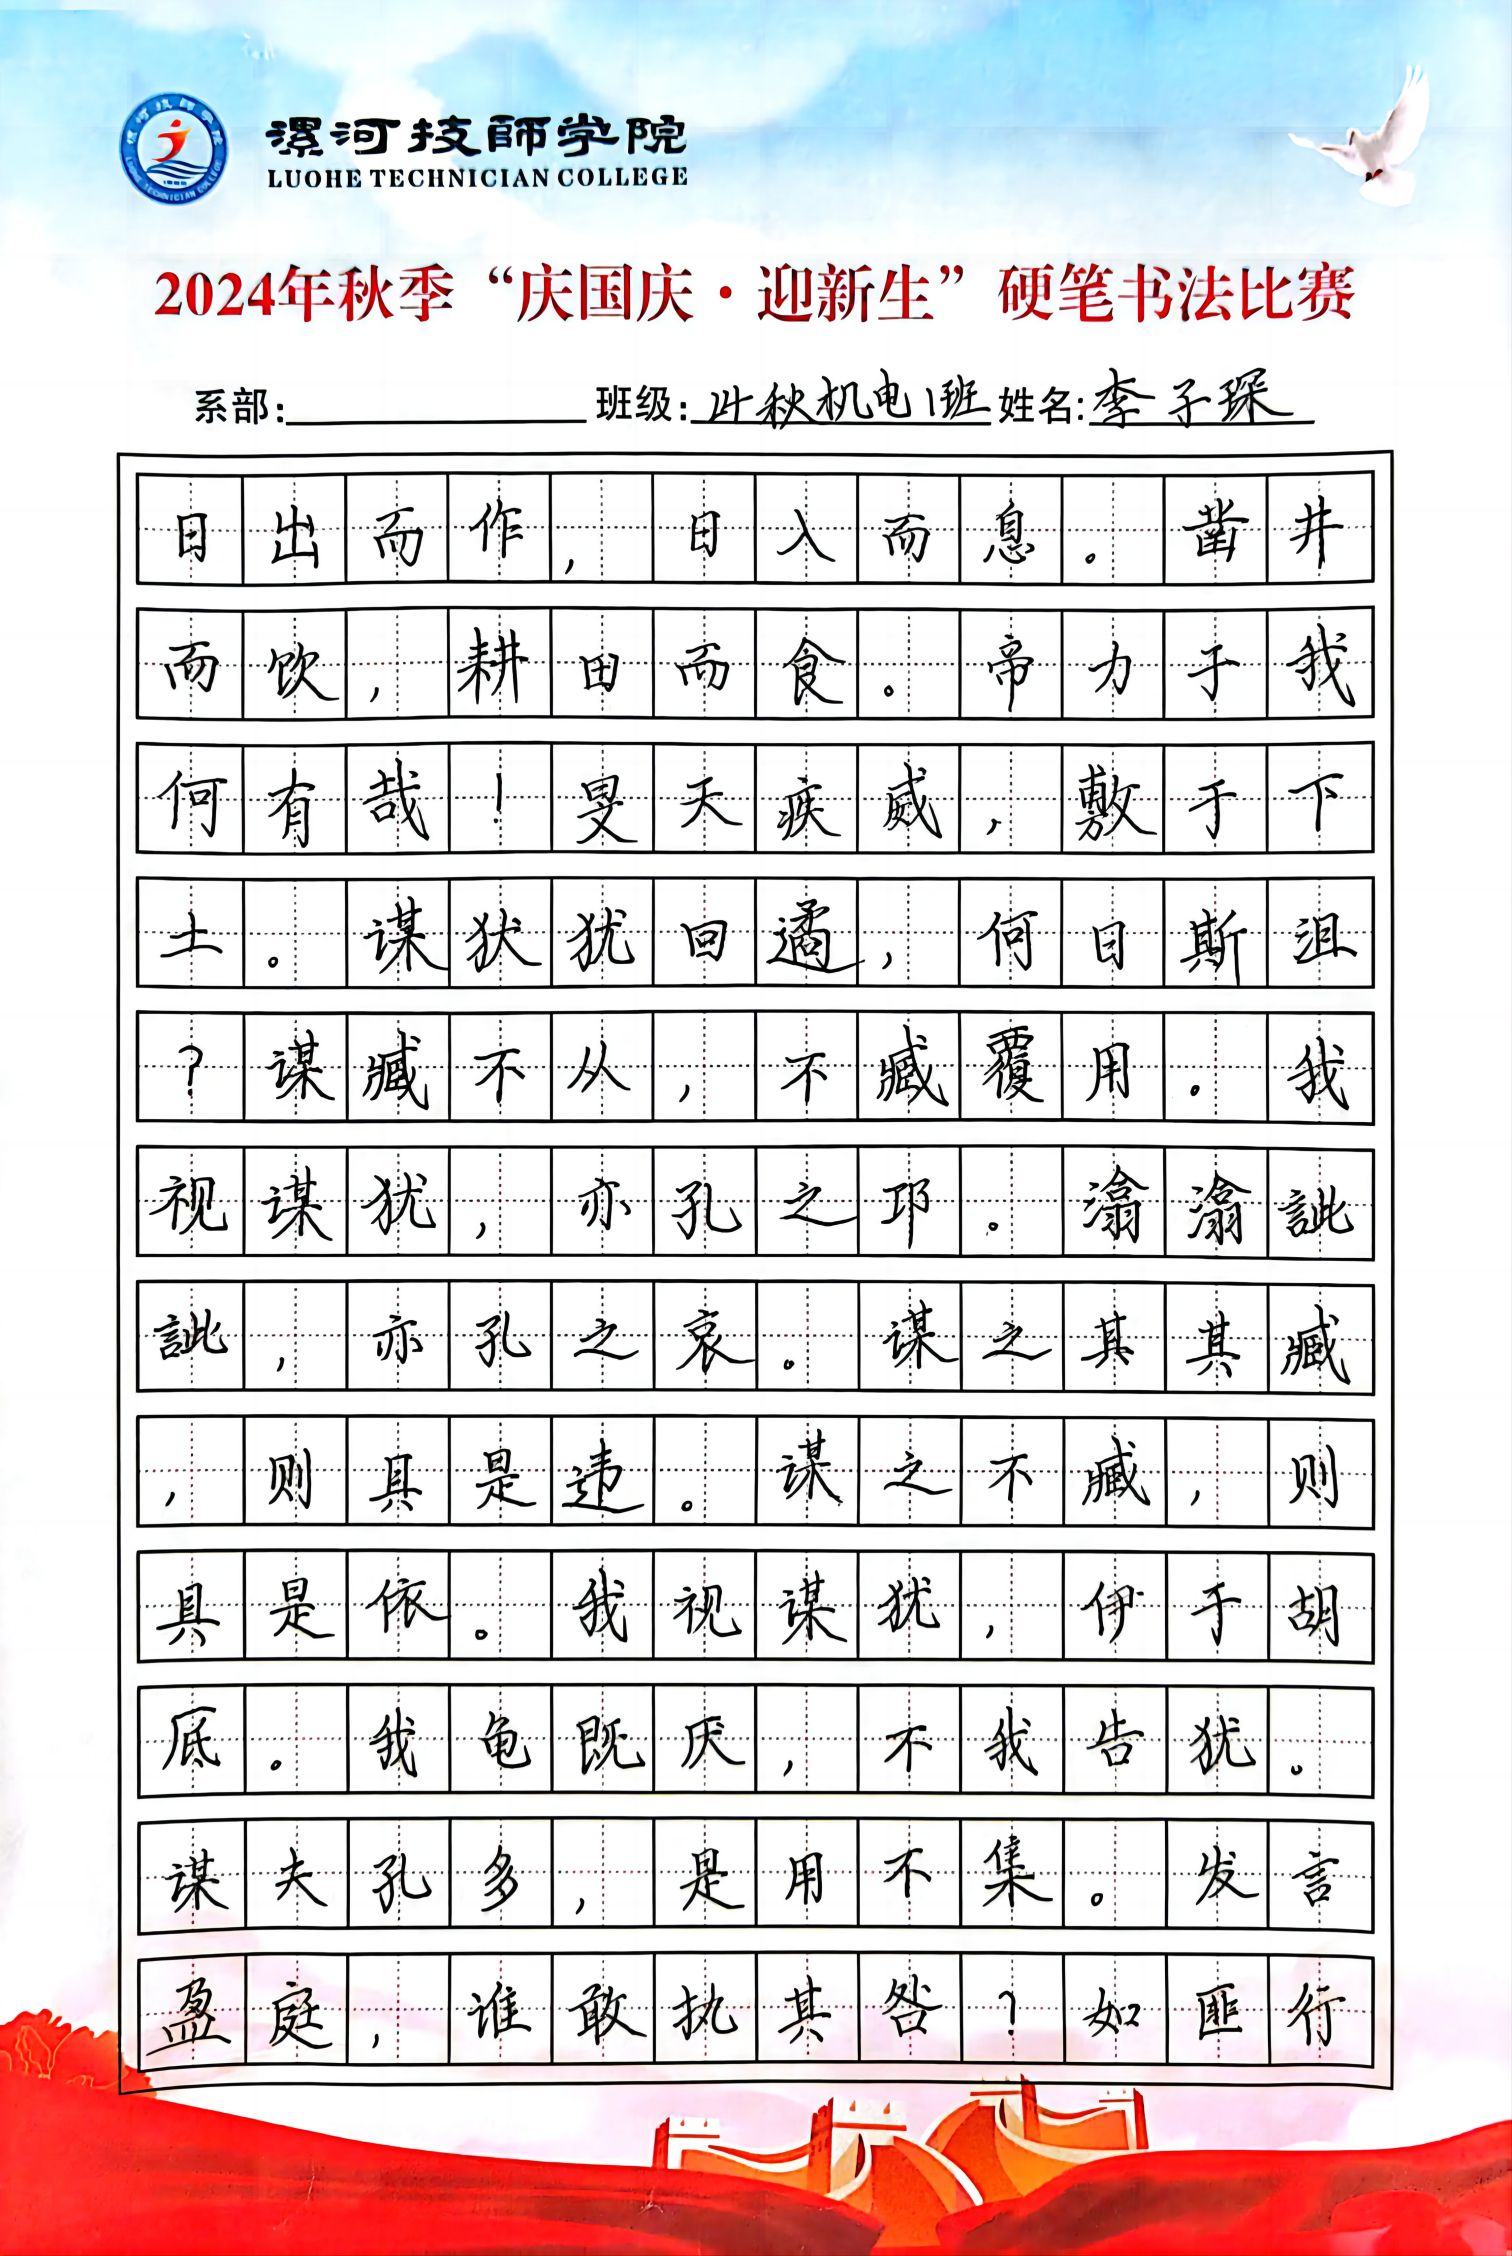 漯河技師学院
LUOHE TECHNICIAN COLLEGE
2024年秋季“庆国庆·迎新生”硬笔书法比赛
系部: 班级: 24秋机电1班 姓名: 李子琛
日出而作，日入而息。凿井
而饮，耕田而食。帝力于我
何有哉！旻天疾威，敷于下
土。谋犾犹回遹，何日斯沮
？谋臧不从，不臧覆用。我
视谋犹，亦孔之邛。潝潝訿
訿，亦孔之哀。谋之其其臧
，则具是违。谋之不臧，则
具是依。我视谋犹，伊于胡
底。我龟既厌，不我告犹。
谋夫孔多，是用不集。发言
盈庭，谁敢执其咎？如匪行